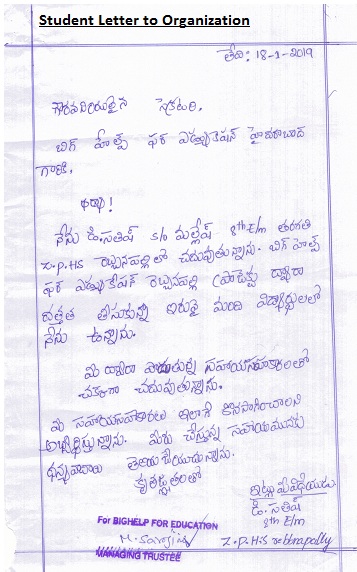 Student Letter to Organization
తేది: 18-1-2019
గౌరవనీయులైన
బిగ్ హెల్ప్ ఫర్ ఎడ్యుకేషన్ హైదరాబాద్
గారికి,
నేను డి.సతీష్ s/o మల్లేష్ 8th E/m తరగతి
Z.P.H.S రెబ్బనపల్లి లో చదువుతున్నాను. బిగ్ హెల్ప్
ఫర్ ఎడ్యుకేషన్ రెబ్బనపల్లి ద్వారా
దత్తత తీసుకున్న ఇరువై మంది విద్యార్థులలో
నేను ఉన్నాను.
మీ ద్వారా పొందుతున్న సహాయసహకారంతో
చక్కగా చదువుతున్నాను.
మీ సహాయసహకారాలు ఇలాగే కొనసాగించాలని
మీరు చేస్తున్న సహాయమునకు
ధన్యవాదాలు తెలియజేయుచున్నాను.
కృతజ్ఞతలతో
ఇట్లు మీ విధేయుడు
డి. సతీష్
8th E/m
Z.P.H.S rebbnapally
For BIGHELP FOR EDUCATION
MANAGING TRUSTEE